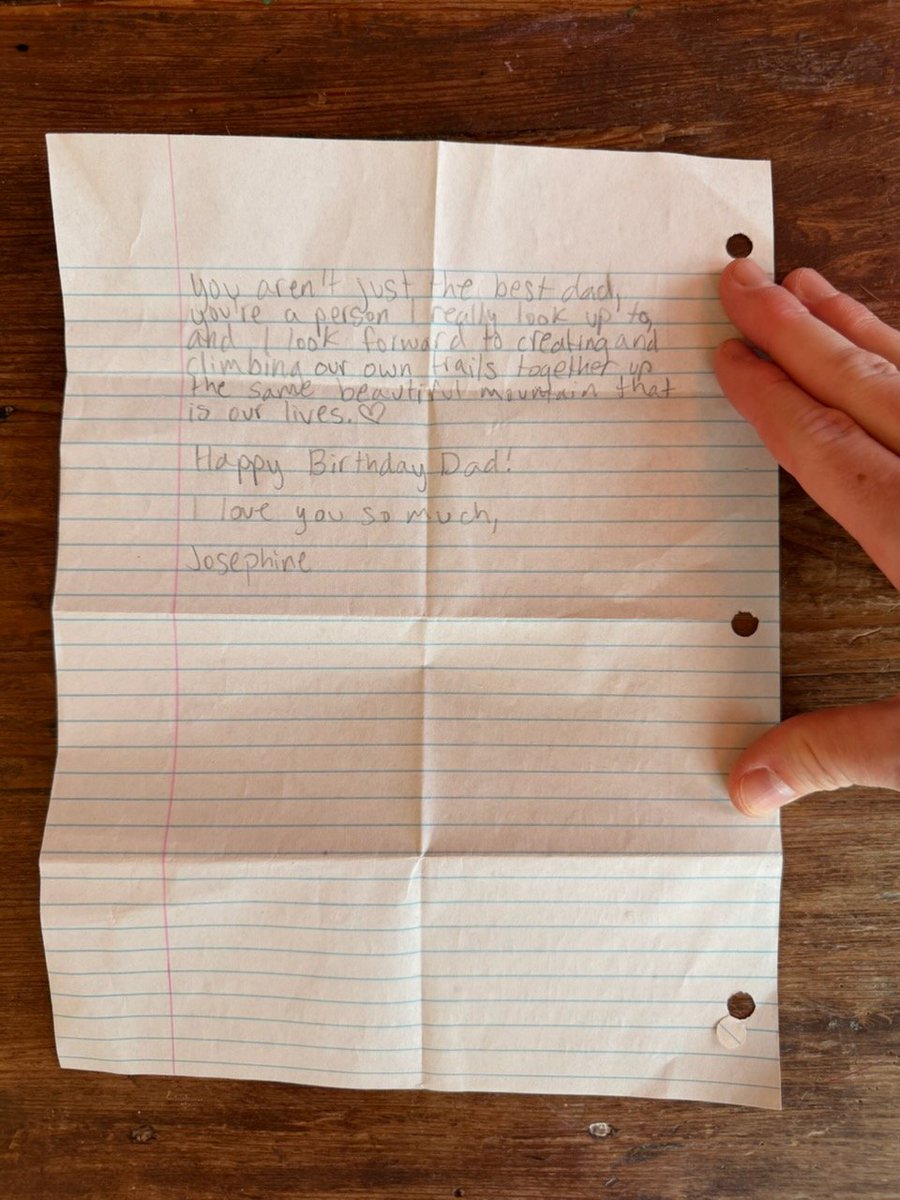 you aren't just the best dad,
you're a person I really look up to,
and I look forward to creating and
climbing our own trails together up
the same beautiful mountain that
is our lives.♡
Happy Birthday Dad!
I love you so much,
Josephine